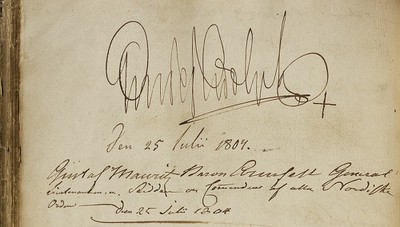 Gustaf Adolph
Den 25 Julii 1804.
Gustaf Mauritz Baron Armfelt General
Lieutenant Riddare och Commendeur af alla Nordiske
Orden Den 25 Juli 1804